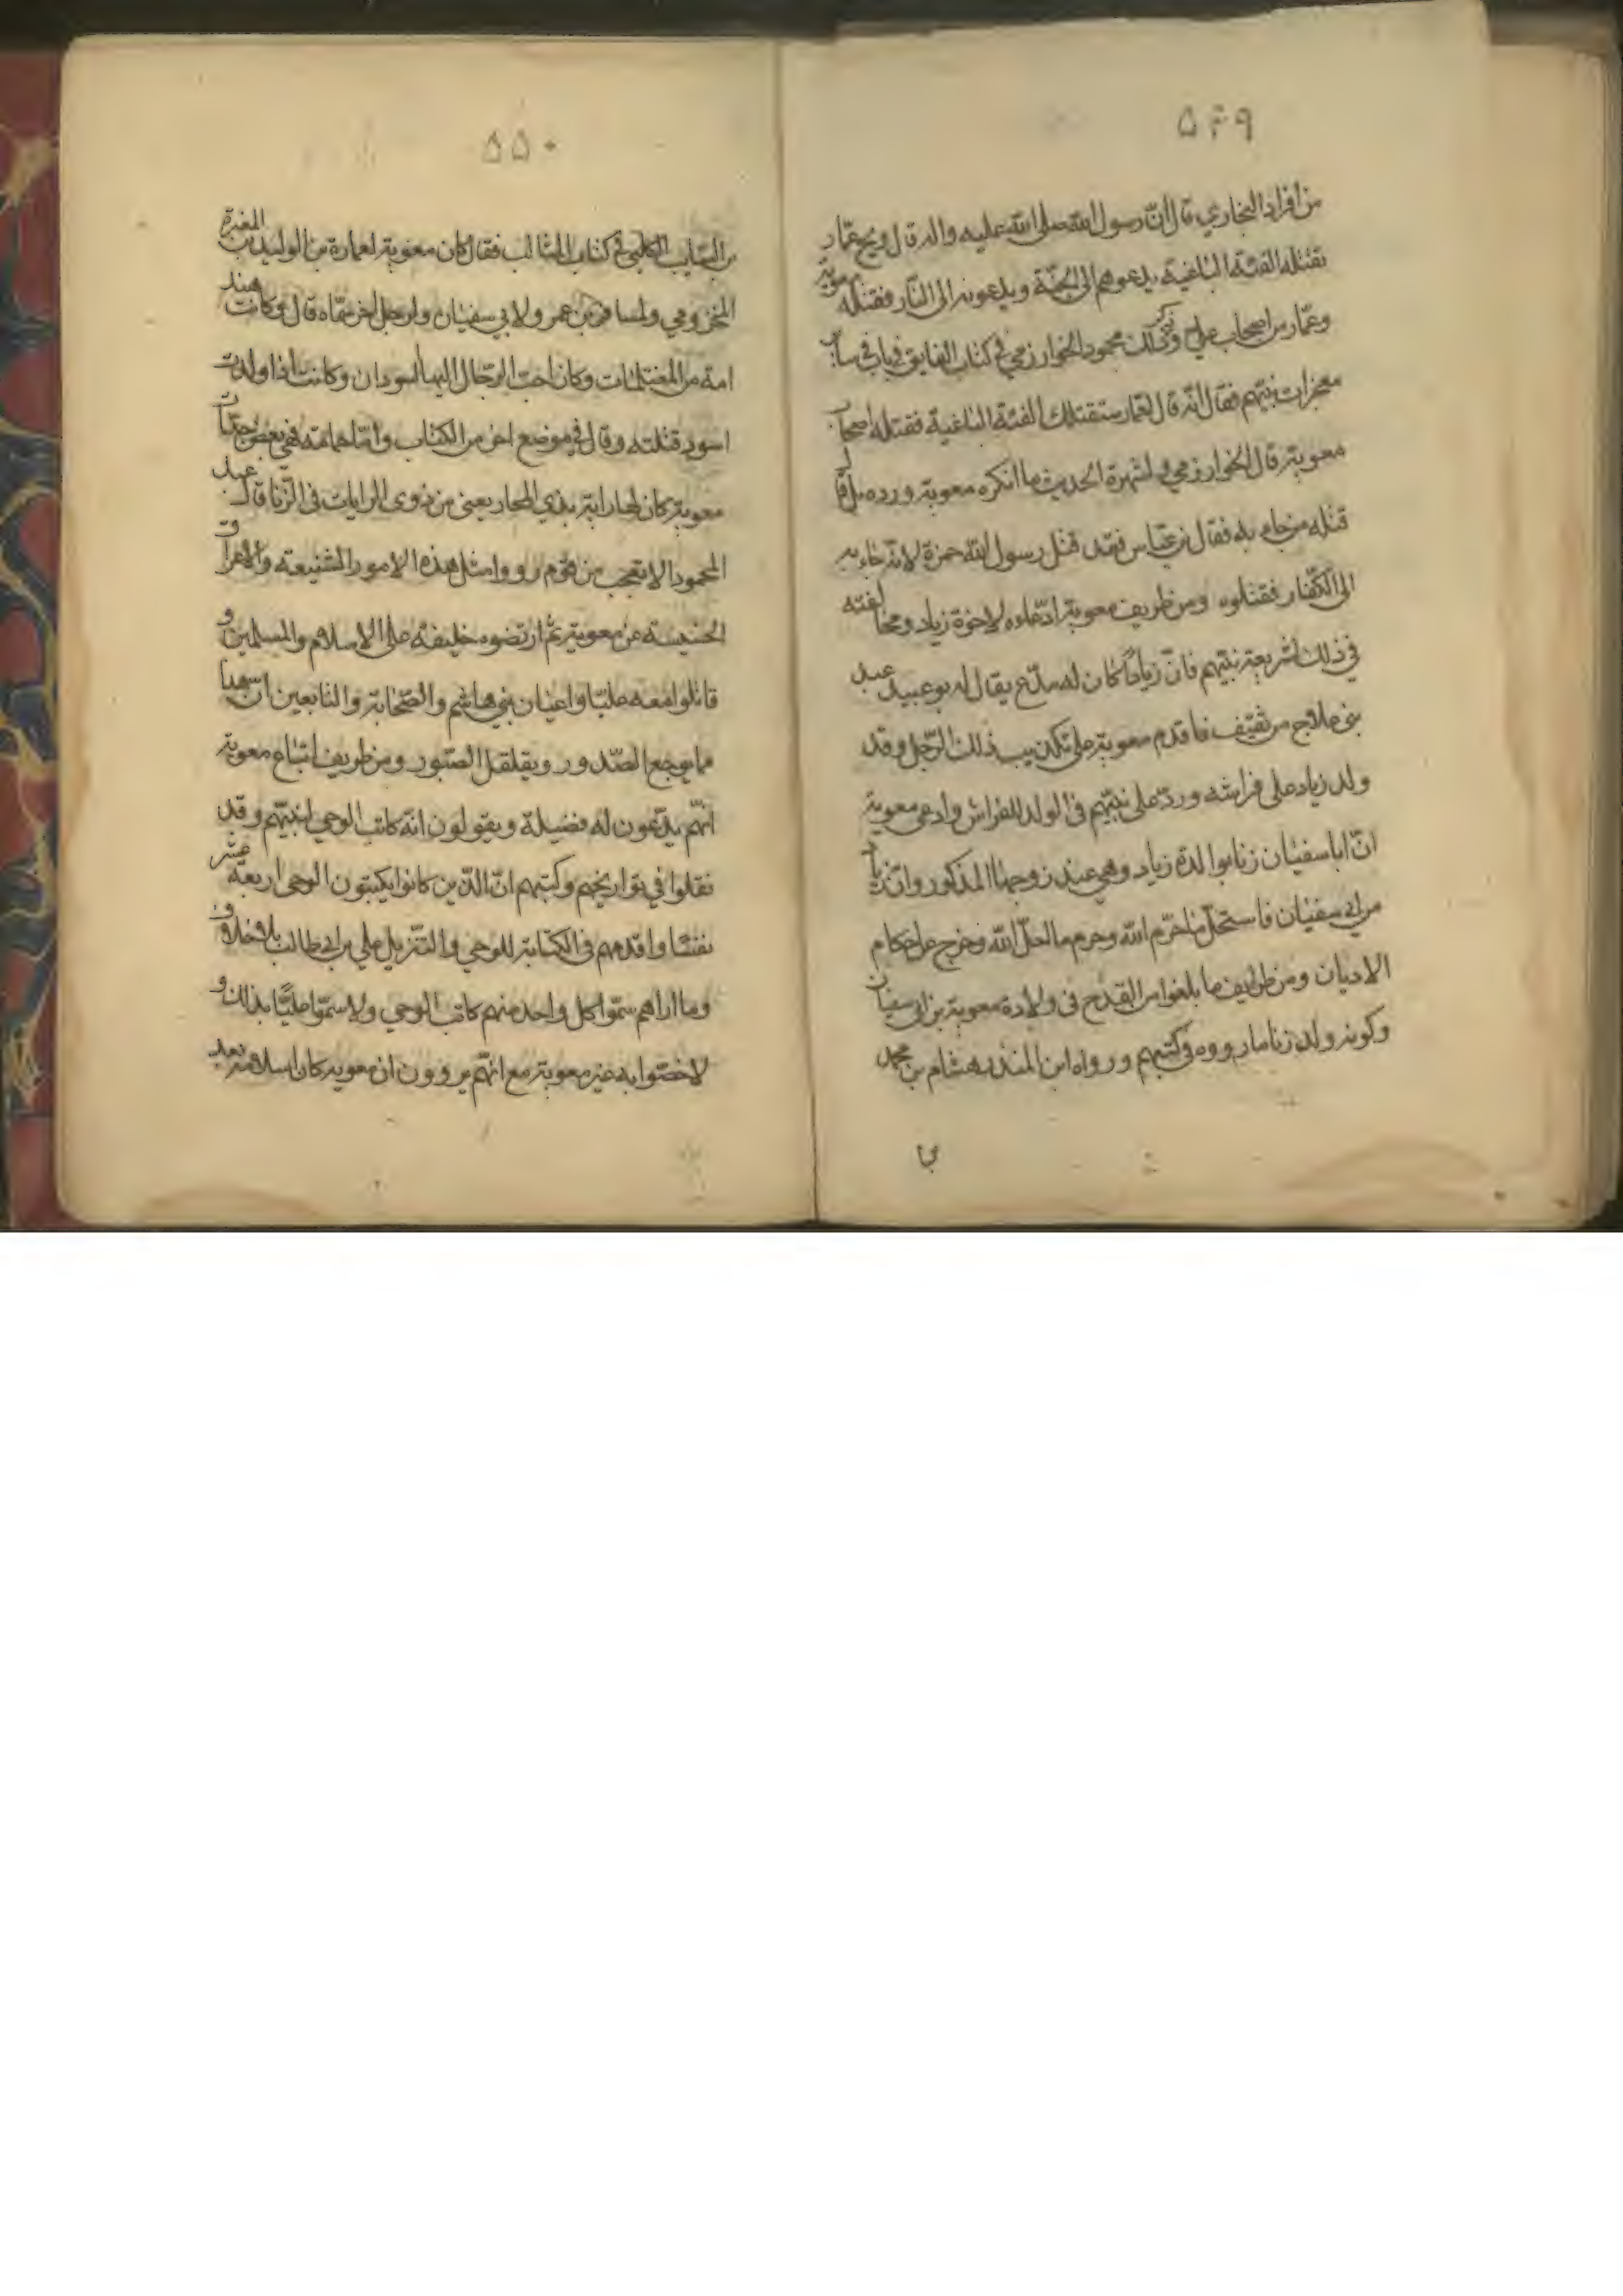 ۵۴۹
من افراد البخاري قال ان رسول الله صلى الله عليه واله قال ويح عمار
تقتله الفئة الباغية يدعوهم الى الجنة ويدعونه الى النار فقتله معوية
وعمار من اصحاب علي وذكر ذلك محمود الخوارزمي في كتاب الفايق في باب في ساير
معجزات نبيهم فقال انه قال لعمار ستقتلك الفئة الباغية فقتله اصحاب
معوية قال الخوارزمي ولشهرة الحديث ما انكره معوية ورده بل قال
قتله من جاء به فقال بن عباس فقد قتل رسول الله حمزة لانه جاء به
الى الكفار فقتلوه ومن طريف معوية ادعاءه لاخوة زياد ومخالفته
في ذلك لشريعة نبيهم فان زيادا كان له مدع يقال له بو عبيد عبد
بني علاج من ثقيف فاقدم معوية على تكذيب ذلك الرجل وقد
ولد زياد على فراشه ورد على نبيهم في الولد للفراش وادعى معوية
ان ابا سفيان زنا بوالدة زياد وهي عند زوجها المذكور وان زيادا
من ابي سفيان فاستحل ما حرم الله وحرم ما احل الله وخرج عن احكام
الاديان ومن طرايف ما بلغوا من القدح في ولادة معوية بن ابي سفيان
وكونه ولد زنا ما رووه في كتبهم ورواه ابن المنذر هشام بن محمد
۵۵۰
بن السايب الكلبي في كتاب المثالب فقال كان معوية لعمارة بن الوليد بن المغيرة
المخزومي ولمسافر بن عمر ولابي سفيان ولرجل اخر سماه قال وكانت هند
امه من المغتلمات وكان احب الرجال اليها السودان وكانت اذا ولدت
اسود قتلته وقال في موضع اخر من الكتاب واما حمامة فهي بعض جدات
معوية كان لها راية بذي المجاز يعني من ذوي الرايات في الزنا قال عبد
المحمود الا تعجب من قوم رووا مثل هذه الامور الشنيعة والاعراق
الخسيسة عن معوية ثم ارتضوه خليفة على الاسلام والمسلمين و
قاتلوا معه عليا واعيان بني هاشم والصحابة والتابعين ان هذا
مما يوجع الصدور ويقلقل الصبور ومن طريف اتباع معوية
انهم يدعون له فضيلة ويقولون انه كاتب الوحي لنبيهم وقد
نقلوا في تواريخهم وكتبهم ان الذين كانوا يكتبون الوحي اربعة عشر
نفسا واقدمهم في الكتابة للوحي والتنزيل علي بن ابي طالب بلا خلاف
وما اراهم سموا كل واحد منهم كاتب الوحي ولا سموا عليا بذلك و
لا خصوا به غير معوية مع انهم يروون ان معوية كان اسلامه بعد